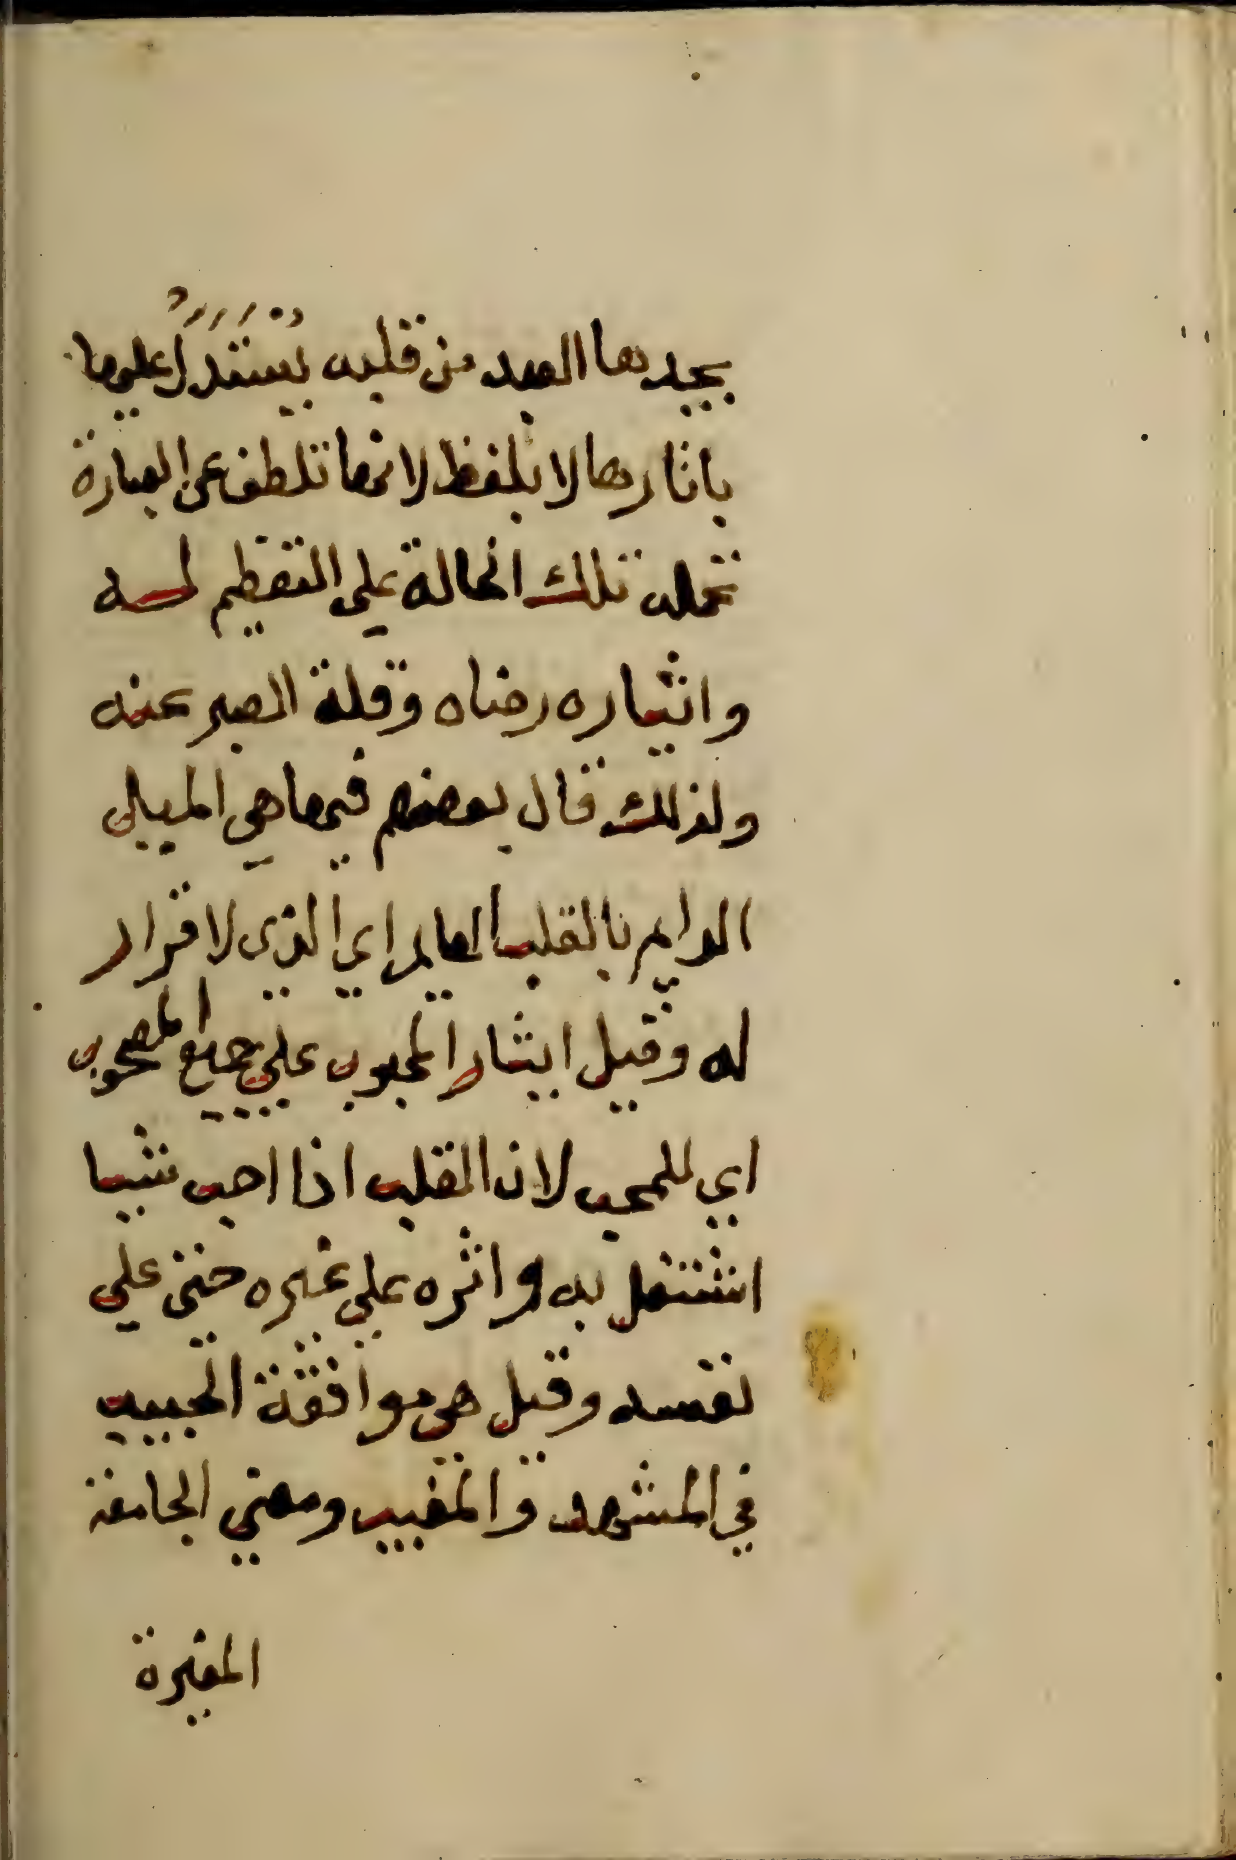 يجدها العبد من قلبه يُستَدَلُ عليها
باثارها لا بلفظ لانها تلطف عن العبارة
تحمله تلك الحالة علي التعظيم لله
وايثاره رضاه وقلة الصبر عنه
ولذلك قال بعضهم فيها هي الميل
الدايم بالقلب الهايم اي الذي لا قرار
له وقيل ايثار المحبوب علي جميع المصحوب
اي للمحب لان القلب اذا احب شيا
اشتغل به واثره علي غيره حتي علي
نفسه وقيل هي موافقة الحبيب
في المشهد والمغيب ومعني الجامعة
المغيرة